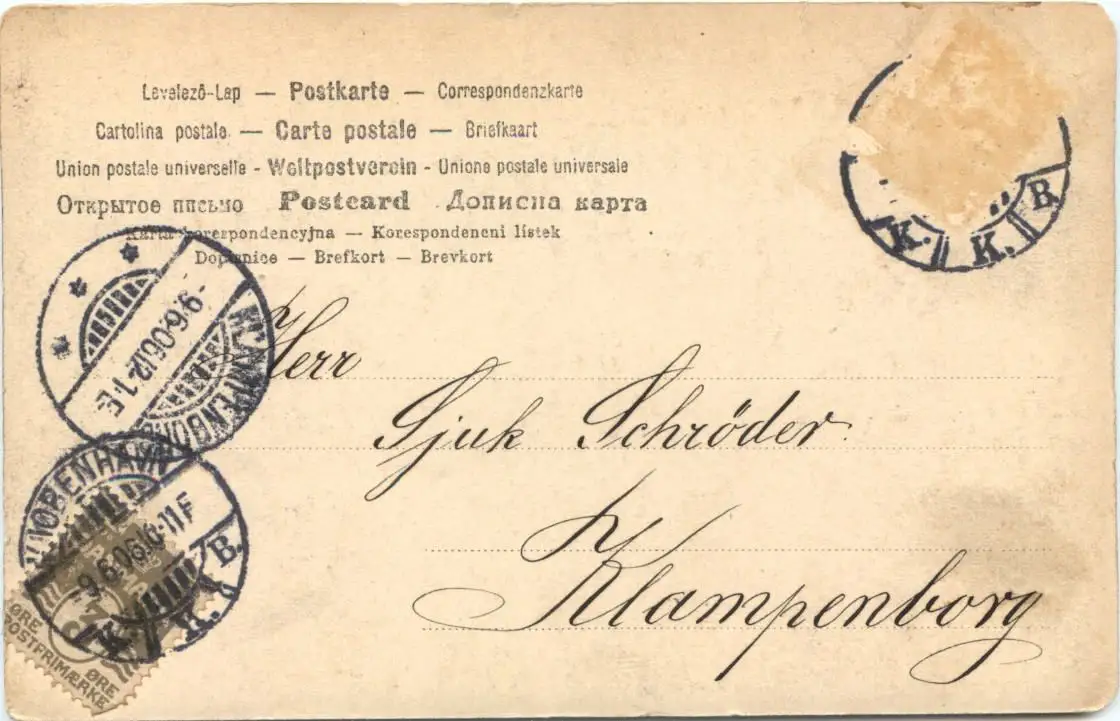 Levelező-Lap — Postkarte — Correspondenzkarte
Cartolina postale — Carte postale — Briefkaart
Union postale universelle - Weltpostverein - Unione postale universale
Открытое письмо Postcard Дописна карта
Karta korespondencyjna — Korespondencni lístek
Dopisnice — Brefkort — Brevkort
K. K. B.
-9.6.06.12-1.E.
KLAMPENBORG
Herr
Sjuk Schröder
Klampenborg
KJØBENHAVN
-9.6.06. 10-11F
K. K. B.
ØRE
POSTFRIMÆRKE
ØRE